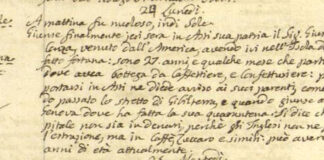 24 Lunedì.
A mattina fu nuvoloso, indi Sole.
Giunse finalmente jeri sera in Asti sua patria il Sig. Giu
venuto dall'America, avendo ivi nell'Isola d
fatto fortuna: sono 27. anni, e qualche mese che part
dove avea bottega da Caffettiere, e Confetturiere: p
portarsi in Asti ne diede avviso ai suoi parenti, com
do passato lo stretto di Gibilterra, e quando giunse a
Genova dove ha fatta la sua quarantena. Si dice ch
pitale non sia in denari, perchè gli Inglesi non ne
l'estrazione, ma in Caffè, Zuccaro e simili. può aver
anni di età attualmente.